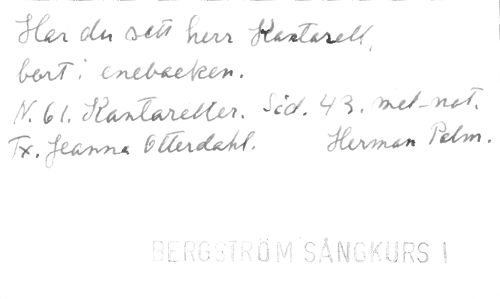 Har du sett herr Kantarell,
bort i enebacken.
N. 61. Kantareller. Sid. 43. mel-not.
Tx. Jeanna Otterdahl. Herman Palm.
BERGSTRÖM SÅNGKURS I